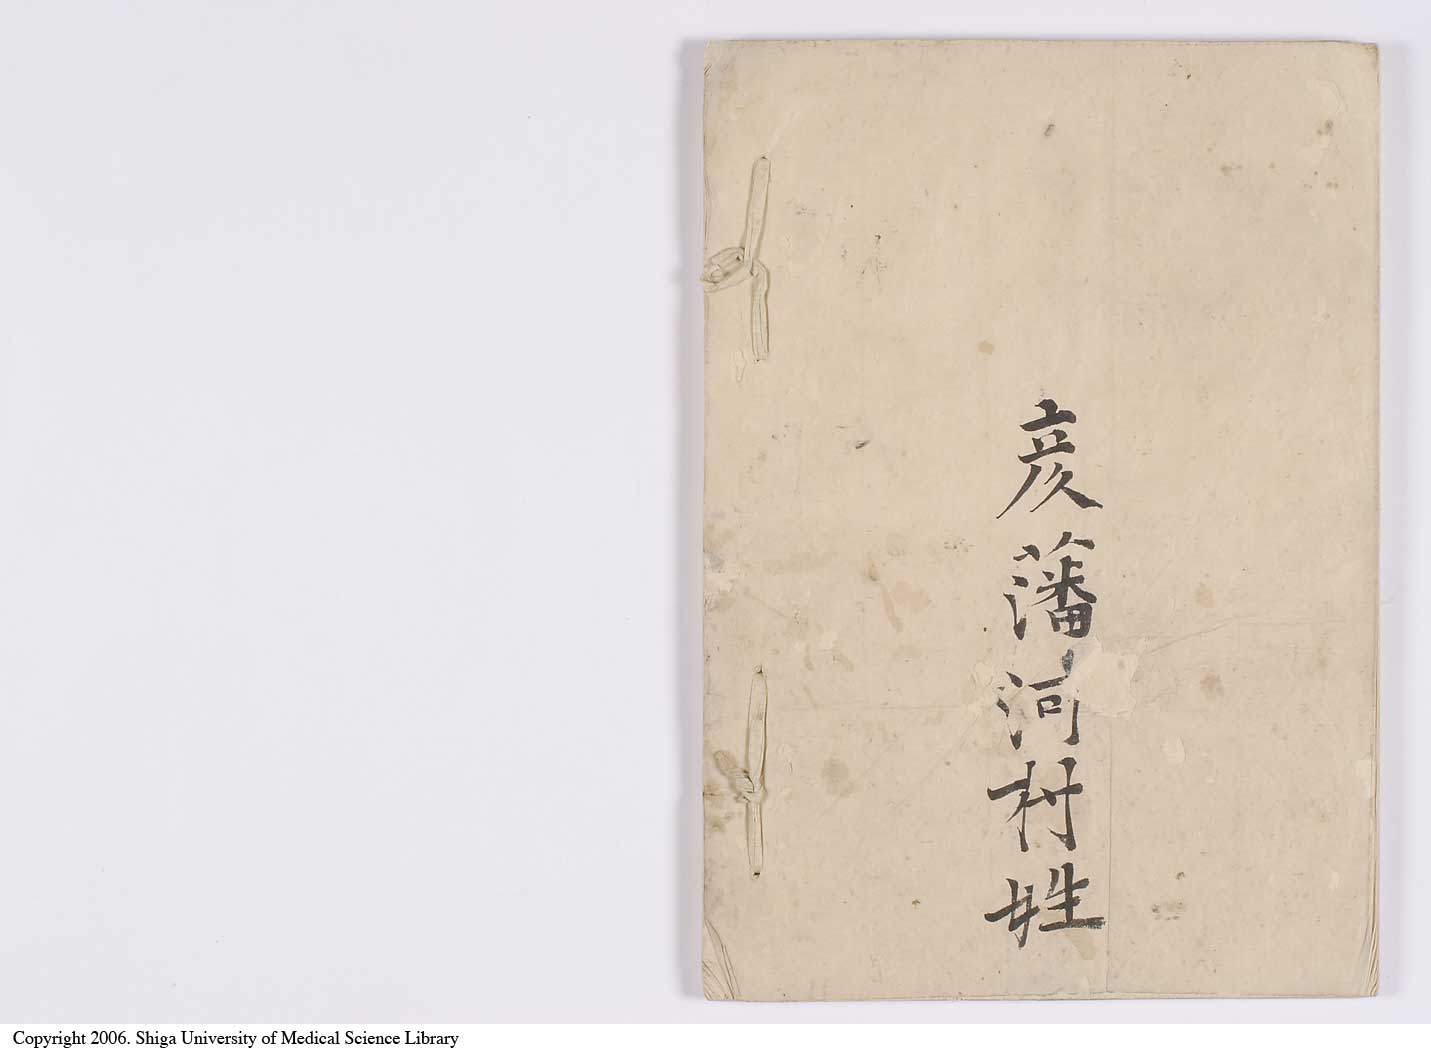 彦藩河村姓
Copyright 2006. Shiga University of Medical Science Library